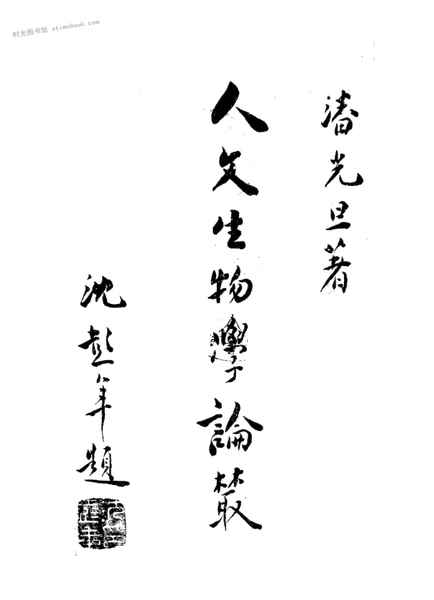 时光图书馆 etimebook.com
潘光旦著
人文生物學論叢
沈彭年題